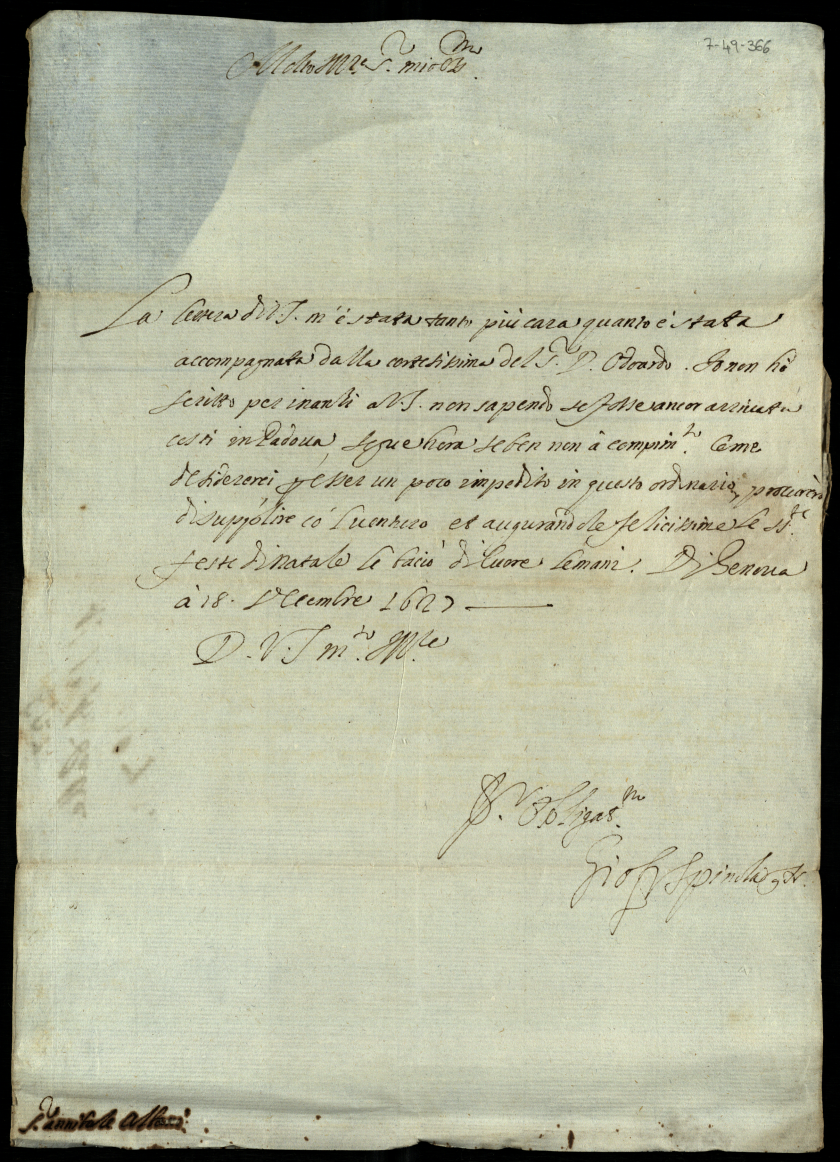 7-49-366
Molto Ill.re S.r mio Oss.mo
La lettera di V.S. m'è stata tanto più cara quanto è stata
accompagnata dalla cortesissima del S.r D. Odoardo. Io non hò
scritto per inanti a V.S. non sapendo se fosse ancor arrivata
costi in Padova, segue hora se ben non à compim.to Come
desidererei p esser un poco impedito in questo ordinario, procurerò
di supplire cò l venturo et augurandole felicissime le ss.te
feste di Natale le bacio di Cuore le mani. Di Genova
à 18. Decembre 1627
D. V. S m.to Ill.re
S.r Obligas.mo
Gio Spinola
S.r Annibale